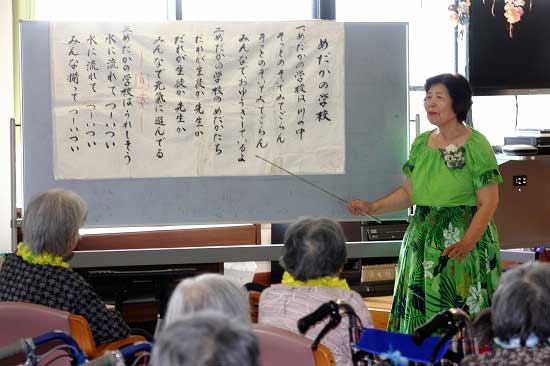 めだかの学校
一、めだかの学校は川の中
そっとのぞいてみてごらん
そっとのぞいてみてごらん
みんなでおゆうぎしているよ
二、めだかの学校のめだかたち
だれが生徒か先生か
だれが生徒か先生か
みんなで元気に遊んでる
三、めだかの学校はうれしそう
水に流れて つーいつい
水に流れて つーいつい
みんな揃って つーいつい